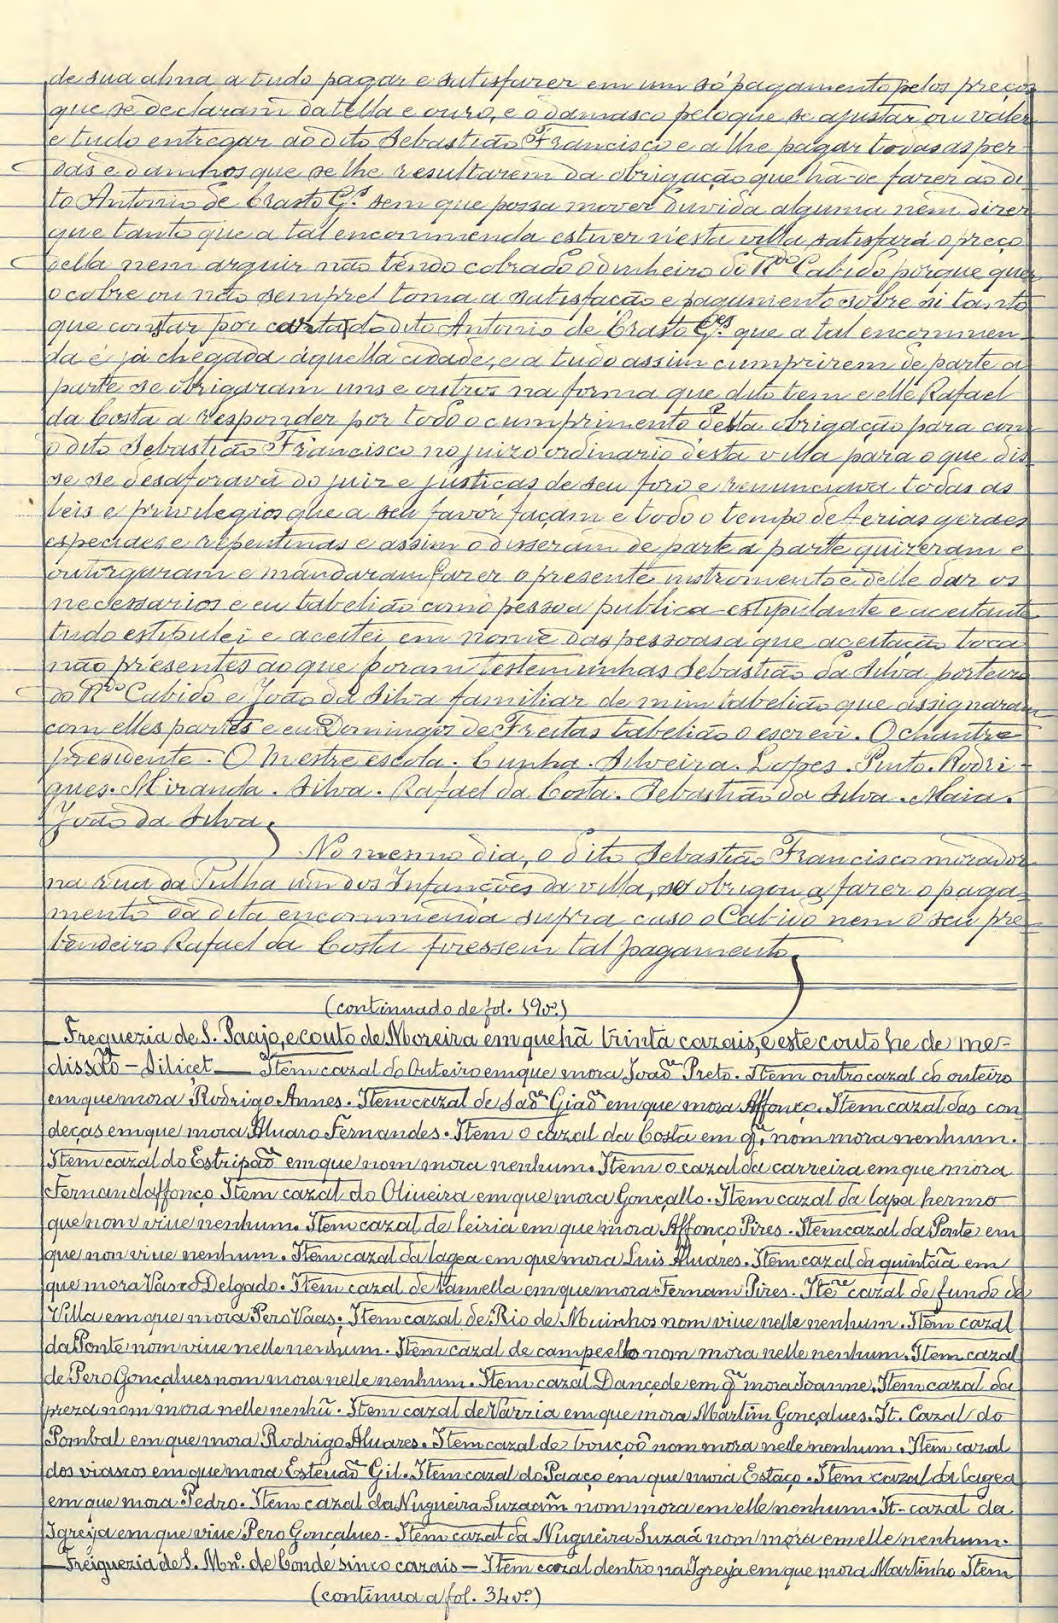 de sua alma a tudo pagar e satisfazer em um só pagamento pelos preços
que se declaram da tella e ouro, e o damasco pelo que se ajustar ou valer
e tudo entregar ao dito Sebastião Francisco e a lhe pagar todas as per-
das e damnos que se lhe resultarem da obrigação que há-de fazer ao di-
to Antonio de Crasto G.es sem que possa mover duvida alguma nem dizer
que tanto que a tal encommenda estiver n'esta villa satisfará o preço
della nem arguir não tendo cobrado o dinheiro do R.do Cabido porque quer
o cobre ou não sempre toma a satisfação e pagamento sobre si tanto
que constar por carta do dito Antonio de Crasto G.es que a tal encommen-
da é já chegada áquella cidade, e a tudo assim cumprirem de parte a
parte se obrigaram uns e outros na forma que dito tem e elle Rafael
da Costa a responder por todo o cumprimento desta obrigação para com
o dito Sebastião Francisco no juizo ordinario desta villa para o que dis-
se se desaforava do juiz e justiças de seu foro e renunciava todas as
leis e privilegios que a seu favor façam e todo o tempo de ferias geraes
especiaes e repentinas e assim o disseram de parte a parte quizeram e
outorgaram e mandaram fazer o presente instromento e delle dar os
necessarios e eu tabelião como pessoa publica estipulante e aceitante
tudo estibulei e aceitei em nome das pessoas a que aceitação toca
não presentes ao que foram testemunhas Sebastião da Silva porteiro
do R.do Cabido e João da Silva familiar de mim tabelião que assignaram
com elles partes e eu Domingos de Freitas tabelião o escrevi. O chantre
presidente. O Mestre escola. Cunha. Silveira. Lopes. Pinto. Rodri-
gues. Miranda. Silva. Rafael da Costa. Sebastião da Silva. Maia.
João da Silva.
No mesmo dia, o dito Sebastião Francisco morador
na rua da Pulha um dos Infanções da villa, se obrigou a fazer o paga-
mento da dita encommenda supra caso o Cabido nem o seu pre-
bendeiro Rafael da Costa fizessem tal pagamento.
(continuado de fol. 19vº)
Freguezia de S. Paajo, e couto de Moreira em que hã trinta cazais, e este couto he de me-
dissão - Siliçet — Item cazal do Outeiro em que mora Joaõ Preto. Item outro cazal do outeiro
em que mora Rodrigo Annes. Item cazal de Saõ Giaõ em que mora Affonço. Item cazal das con
deças em que mora Aluaro Fernandes. Item o cazal da Costa em q̃ nom mora nenhum.
Item cazal do Estripaõ em que nom mora nenhum. Item o cazal da carreira em que mora
Fernandaffonço Item cazal do Oliueira em que mora Gonçallo. Item cazal da lapa hermo
que nom viue nenhum. Item cazal de leiria em que mora Affonço Pires. Item cazal da Ponte em
que non viue nenhum. Item cazal da lagea em que mora Luis Aluares. Item cazal da quintãa em
que mora Vasco Delgado. Item cazal de Vamella em que mora Fernam Pires. Item cazal de fundo de
Villa em que mora Pero Vaas; Item cazal de Rio de Muinhos nom viue nelle nenhum. Item cazal
da Ponte nom viue nelle nenhum. Item cazal de campello nom mora nelle nenhum. Item cazal
de Pero Gonçalues nom mora nelle nenhum. Item cazal Dançede em q̃ mora Joanne. Item cazal da
preza nom mora nelle nenhũ. Item cazal de Varzia em que mora Martim Gonçalues. It. Cazal do
Pombal em que mora Rodrigo Aluares. Item cazal de bouçoõ nom mora nelle nenhum. Item cazal
dos viascos em que mora Esteuaõ Gil. Item cazal do Paaço em que mora Estaço. Item cazal da lagea
em que mora Pedro. Item cazal da Nugueira Suzaãm nom mora em elle nenhum. It- cazal da
Igreja em que viue Pero Gonçalues - Item cazal da Nugueira Suzaã nom mora em elle nenhum.
Freiguezia de S. Mn.º de Conde sinco cazais — Item cazal dentro na Igreja em que mora Martinho Item
(continua a fol. 34vº)